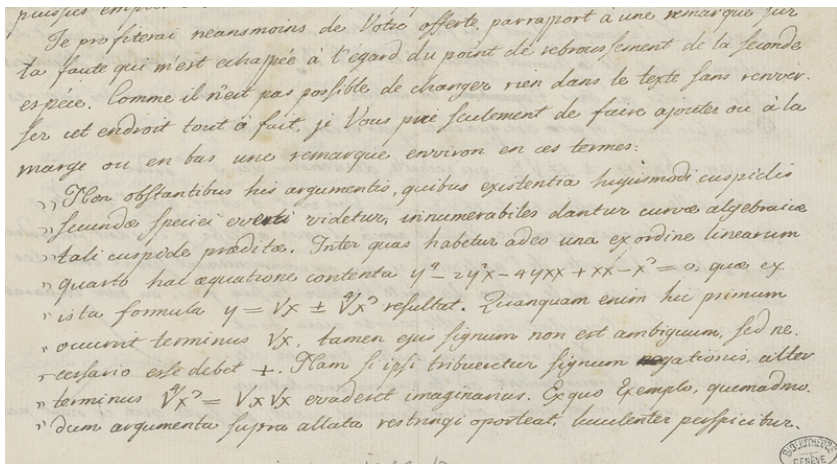 Je profiterai neansmoins de Votre offerte par rapport à une remarque sur
la faute qui m'est echappée à l'égard du point de rebroussement de la seconde
espéce. Comme il n'est pas possible de changer rien dans le texte sans renver-
ser cet endroit tout à fait, je Vous prie seulement de faire ajouter ou à la
marge ou en bas une remarque environ en ces termes:
„ Non obstantibus his argumentis, quibus existentia hujusmodi cuspidis
„ secundæ speciei everti videtur, innumerabiles dantur curvæ algebraicæ
„ tali cuspide præditæ. Inter quas habetur adeo una ex ordine linearum
„ quarto hac æquatione contenta y⁴ – 2y²x – 4yxx + xx – x³ = 0, quæ ex
„ ista formula y = √x ± ∜x³ resultat. Quanquam enim hic primum
„ occurrit terminus √x, tamen ejus signum non est ambiguum, sed ne-
„ cessario esse debet +. Nam si ipsi tribueretur signum negationis, alter
„ terminus ∜x³ = √x√x evaderet imaginarius. Ex quo Exemplo, quemadmo-
„ dum argumenta supra allata restringi oporteat, luculenter perspicitur.
BIBLIOTHEQUE
GENÈVE